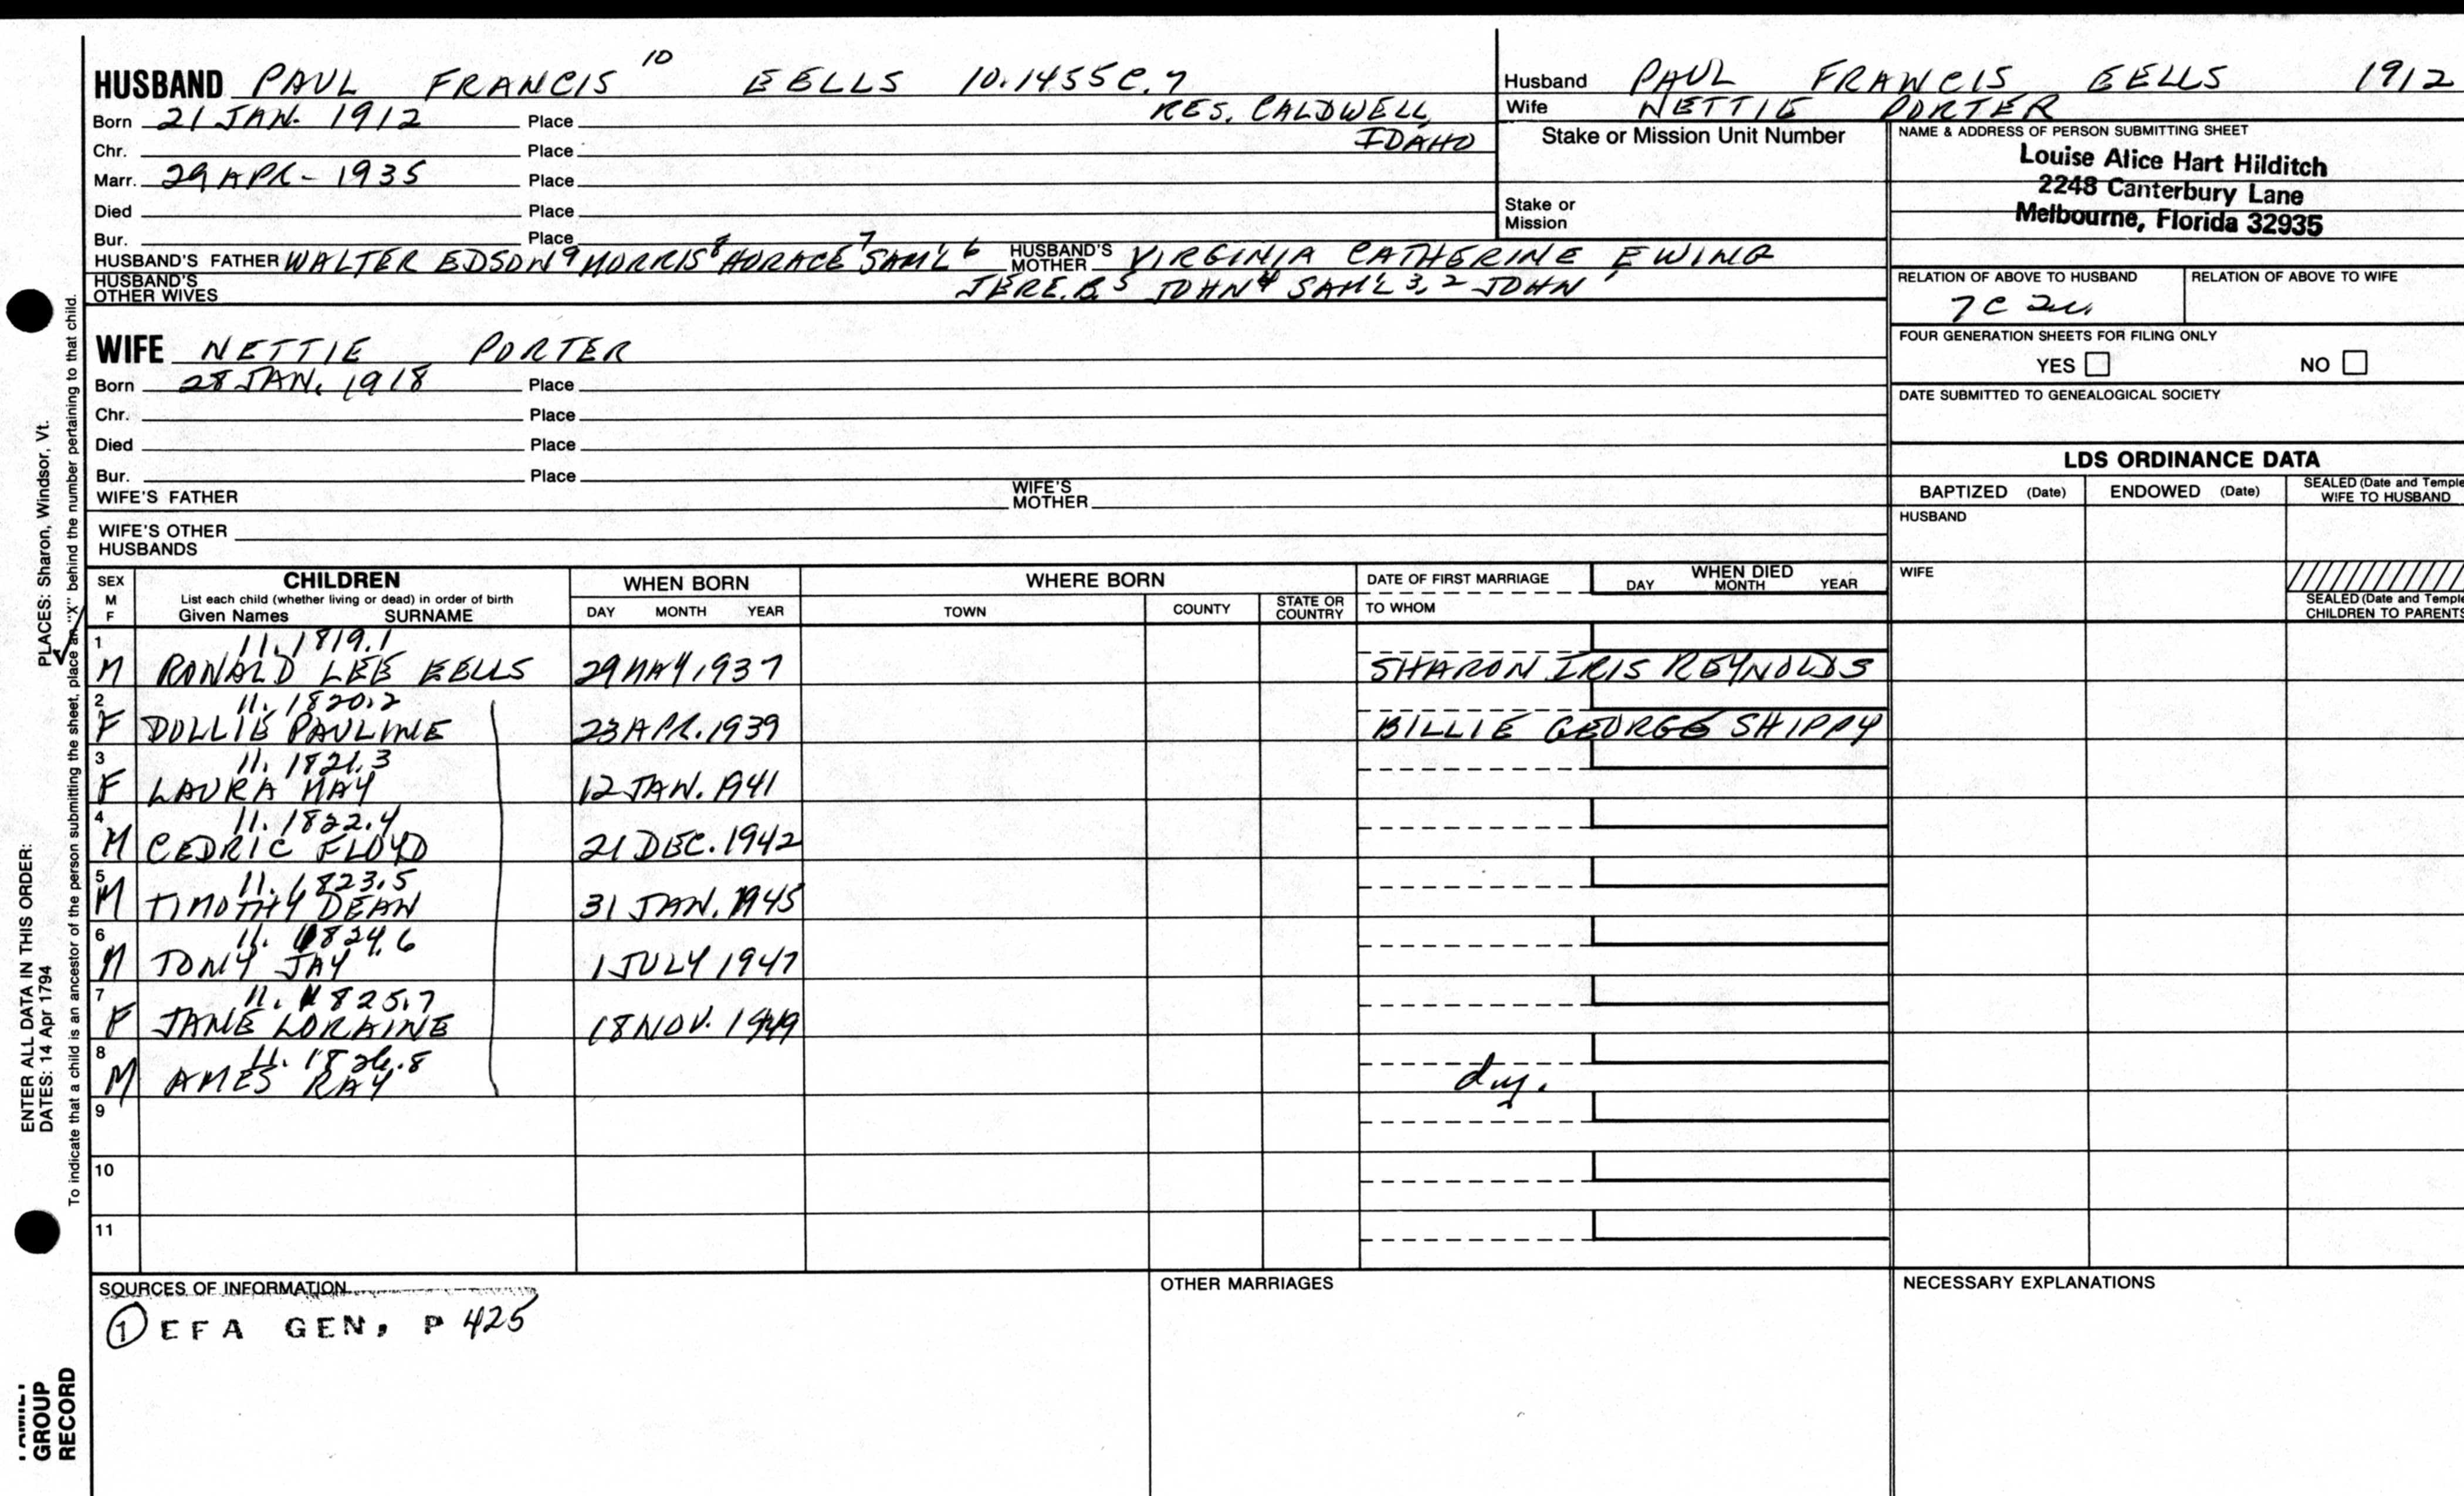 HUSBAND PAUL FRANCIS 10 EELLS 10.1455C.7
Born 21 JAN. 1912 Place RES. CALDWELL,
IDAHO
Chr. Place
Marr. 29 APR - 1935 Place
Died Place
Bur. Place
HUSBAND'S FATHER WALTER EDSON 9 MORRIS 8 HORACE 7 SAM'L 6 HUSBAND'S MOTHER VIRGINIA CATHERINE EWING
HUSBAND'S OTHER WIVES JERE. B. 5 JOHN 4 SAM'L 3, 2 JOHN 1
WIFE NETTIE PORTER
Born 28 JAN. 1918 Place
Chr. Place
Died Place
Bur. Place
WIFE'S FATHER WIFE'S MOTHER
WIFE'S OTHER HUSBANDS
Husband PAUL FRANCIS EELLS 1912
Wife NETTIE PORTER
Stake or Mission Unit Number
Stake or Mission
NAME & ADDRESS OF PERSON SUBMITTING SHEET
Louise Alice Hart Hilditch
2248 Canterbury Lane
Melbourne, Florida 32935
RELATION OF ABOVE TO HUSBAND RELATION OF ABOVE TO WIFE
7C 2u.
FOUR GENERATION SHEETS FOR FILING ONLY
YES NO
DATE SUBMITTED TO GENEALOGICAL SOCIETY
LDS ORDINANCE DATA
BAPTIZED (Date) ENDOWED (Date) SEALED (Date and Temple) WIFE TO HUSBAND
HUSBAND
WIFE
SEALED (Date and Temple) CHILDREN TO PARENTS
SEX M F
CHILDREN
List each child (whether living or dead) in order of birth
Given Names SURNAME
WHEN BORN
DAY MONTH YEAR
WHERE BORN
TOWN COUNTY STATE OR COUNTRY
DATE OF FIRST MARRIAGE
TO WHOM
WHEN DIED
DAY MONTH YEAR
1 11.1819.1
M RONALD LEE EELLS 29 MAY, 1937 SHARON IRIS REYNOLDS
2 11.1820.2
F DOLLIE PAULINE 23 APR. 1939 BILLIE GEORGE SHIPPY
3 11.1821.3
F LAURA MAY 12 JAN. 1941
4 11.1822.4
M CEDRIC FLOYD 21 DEC. 1942
5 11.1823.5
M TIMOTHY DEAN 31 JAN. 1945
6 11.1824.6
M TONY JAY 1 JULY 1947
7 11.1825.7
F JANE LORAINE 18 NOV. 1949
8 11.1826.8
M AMES RAY dy.
9
10
11
SOURCES OF INFORMATION
1 EFA GEN, P 425
OTHER MARRIAGES
NECESSARY EXPLANATIONS
ENTER ALL DATA IN THIS ORDER:
DATES: 14 Apr 1794 PLACES: Sharon, Windsor, Vt.
To indicate that a child is an ancestor of the person submitting the sheet, place an "X" behind the number pertaining to that child.
FAMILY
GROUP
RECORD